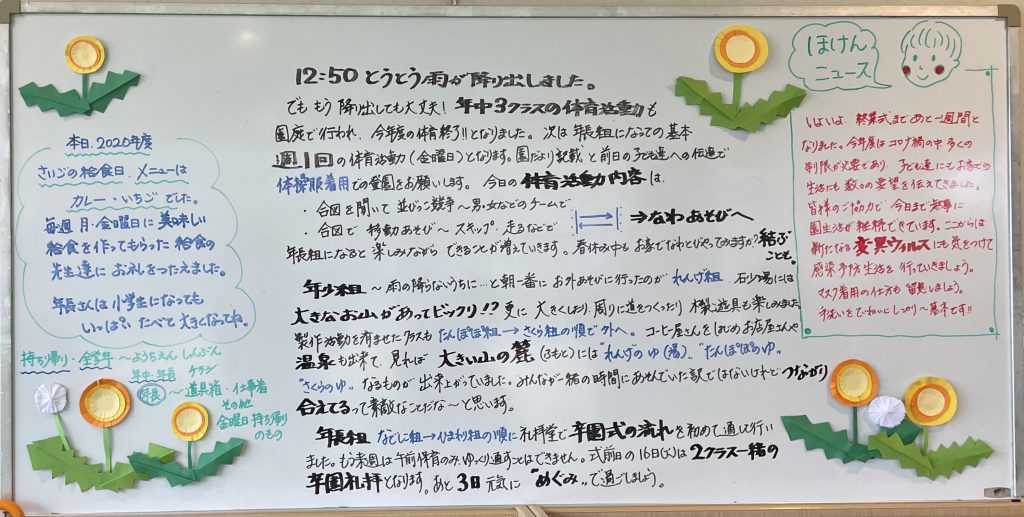 本日、2020年度
さいごの給食日、メニューは
カレー・いちごでした。
毎週月・金曜日に美味しい
給食を作ってもらった給食の
先生達にお礼をつたえました。
年長さんは小学生になっても
いっぱいたべて大きくなってね。
持ち帰り・全学年〜ようちえんしんぶん
年中・年長 チラシ
年長〜道具箱・仕事着
その他
金曜日持ち帰り
のもの
12:50 とうとう雨が降り出しました。
でももう降り出しても大丈夫!年中3クラスの体育活動も
園庭で行われ、今年度の体育終了!!となりました。次は年長組になっての基本
週1回の体育活動(金曜日)となります。園だより記載と前日の子ども達への伝達で
体操服着用での登園をお願いします。今日の体育活動内容は、
・合図を聞いて並びっこ競争〜男・女などのチームで
・合図で移動あそび〜スキップ、走るなどで ⇒なわあそびへ
年長組になると楽しみながらできることが増えていきます。春休み中もお家でなわとびやってみますか?結ぶ
ことも。
年少組〜雨の降らないうちに…と朝一番にお外あそびに行ったのがれんげ組。石少場には
大きなお山があってビックリ!?更に大きくしたり周りに道をつくったり木製遊具も楽しみました。
製作活動を済ませたクラスもたんぽぽ組→さくら組の順で外へ。コーヒー屋さんをはじめお店屋さんや
温泉も出来て、見れば大きい山の麓(ふもと)には"れんげのゆ(湯)"、"たんぽぽのゆ"
"さくらのゆ"なるものが出来上がっていました。みんなが一緒の時間にあそんでいた訳ではないけれどつながり
合えてるって素敵なことだな〜と思います。
年長組 なでしこ組→ひまわり組の順に礼拝堂で卒園式の流れを初めて通して行い
ました。もう来週は午前保育のみ、ゆっくり過すことはできません。式前日の16日(火)は2クラス一緒の
卒園礼拝となります。あと3日元気に"めぐみ"で過ごしましょう。
ほけん
ニュース
いよいよ、終業式まであと一週間と
なりました。今年度はコロナ禍の中多くの
制限が必要であり、子ども達にもお家での
生活にも数々の要望を伝えてきました。
皆様のご協力で今日まで無事に
園生活が継続できています。ここからは
新たなる変異ウィルスにも気をつけて
感染予防生活を行っていきましょう。
マスク着用の仕方も留意しましょう。
手洗いをていねいにしっかり〜基本です!!